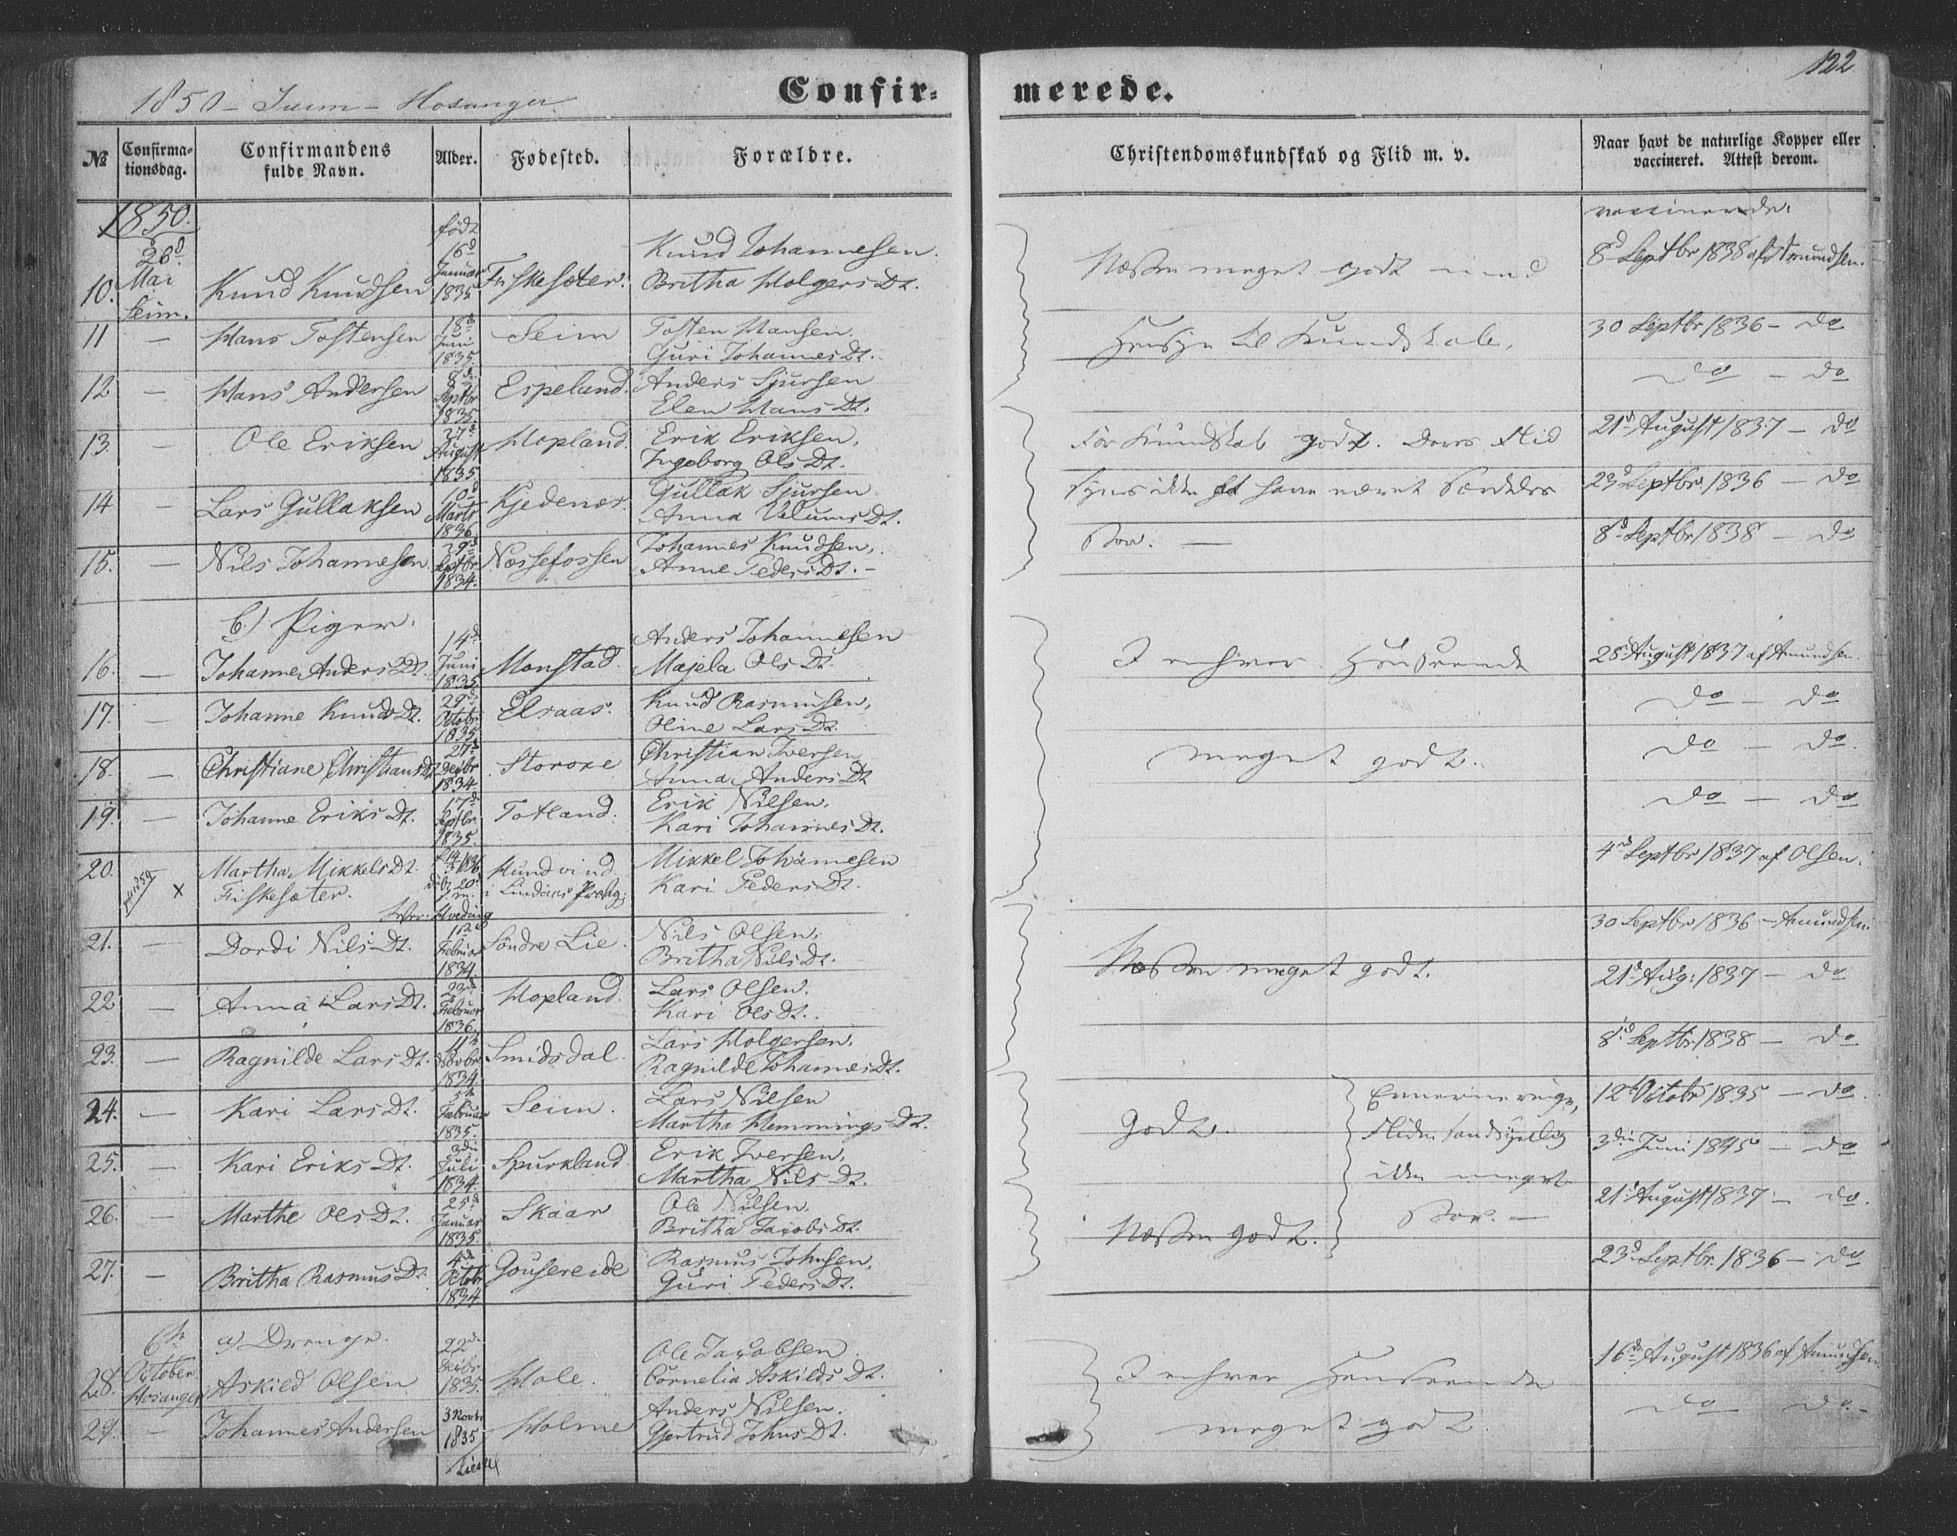 1850 - Seim - Hosanger.
Confir- merede.
122
No
Confirma-
tionsdag.
Confirmandens
fulde Navn.
Alder.
Fødested.
Forældre.
Christendomskundskab og Flid m. v.
Naar havt de naturlige Kopper eller
vaccineret. Attest derom.
1850.
født
vaccinerede:
10. 26d Mai Seim. Knud Knudsen 16d Januar 1835 Fiskesæter. Knud Johannesen. Britha Holgers Dt. Næsten meget godt med 8d Septbr 1838 af Amundsen.
11 — Hans Tostensen 18d Juni 1835. Seim Tosten Hansen. Guri Johannes Dt. Hensyn til Kundskab. 30 Septbr 1836 - do
12 — Hans Andersen 8de Septbr 1835. Espeland. Anders Sjursen Elen Hans Dt. do - do
13. — Ole Eriksen 27d August 1835 Hopland. Erik Eriksen, Ingeborg Ols Dt. For Kundskab godt. Deres Flid 21d August 1837 - do
14 — Lars Gullaksen 10d Marts 1836 Kjedenes. Gullak Sjursen Anna Dt. synes ikke at have været særdeles 23d Septbr. 1836 - do
15. — Nils Johannesen 29d Septbr 1834. Næssefossen Johannes Knudsen, Anne Peders Dt. - stor. — 8d Septbr 1838 - do
b.) Piger.
16. — Johanne Anders Dt. 14d Juni 1835 Monstad. Anders Johannesen Majela Ols Dt. I enhver Henseende 28d August 1837 af Amundsen.
17. — Johanne Knuds Dt. 29d Octobr 1835 Elsaas. Knud Rasmusen, Oline Lars Dt. do - do
18. — Christiane Christians Dt 27d Decbr 1834 Storoxe Christian Iversen Anna Anders Dt meget godt. do - do.
19. — Johanne Eriks Dt. 17d Septbr 1835. Totland. Erik Nilsen. Kari Johannes Dt. do - do
20. x Martha Mikkels Dt. Fiskesæter. Hundvind i Lindaas Præstg. Mikkel Johannesen Kari Peders Dt. 4d Septbr 1837 af Olsen.
21. — Dordi Nils Dt. 12d Februar 1834. Søndre Lie. Nils Olsen, Britha Nils Dt. Næsten meget godt. 30 Septbr 1836 - Amundsen
22 — Anna Lars Dt. 23d Februar 1836. Hopland. Lars Olsen. Kari Ols Dt. 21d Aug: 1837 - do
23. — Ragnilde Lars Dt. 11te Novbr 1834. Smidsdal. Lars Holgersen. Ragnilde Johannes Dt. 8d Septbr. 1838 - do
24. — Kari Lars Dt. 5te Februar 1835. Seim. Lars Nilsen Martha Hemmings Dt. Godt. 12d Octobr 1835 - do.
25. — Kari Eriks Dt. 3die Juli 1834. Spurkland Erik Iversen. Martha Nils Dt. Flidens ikke meget 3die Juni 1845 - do
26. — Marthe Ols Dt. 25d Januar 1835. Skaar Ole Nilsen. Britha Jacobs Dt. Næsten godt. stor. — 21d August 1837 - do.
27. — Britha Rasmus Dt. 4de Octob. 1834. Gousereide Rasmus Johnsen, Guri Peders Dt. 23d Septbr. 1836 - do
a) Drenge.
28. 6te October Hosanger Askild Olsen. 22d 1835. Hole. Ole Jacobsen. Cornelia Askilds Dt. I enhver Henseende 16d August 1836 af Amundsen.
29. — Johannes Andersen 3 Novbr 1835 Holme Anders Nilsen. Gjertrud Johns Dt. meget godt do - do. -